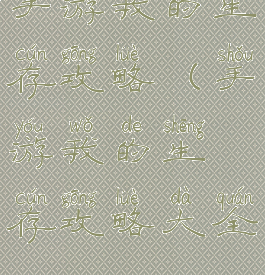 手游我的生
cún gōng lüè shǒu
存攻略(手
yóu wǒ de shēng
游我的生
cún gōng lüè dà quán
存攻略大全